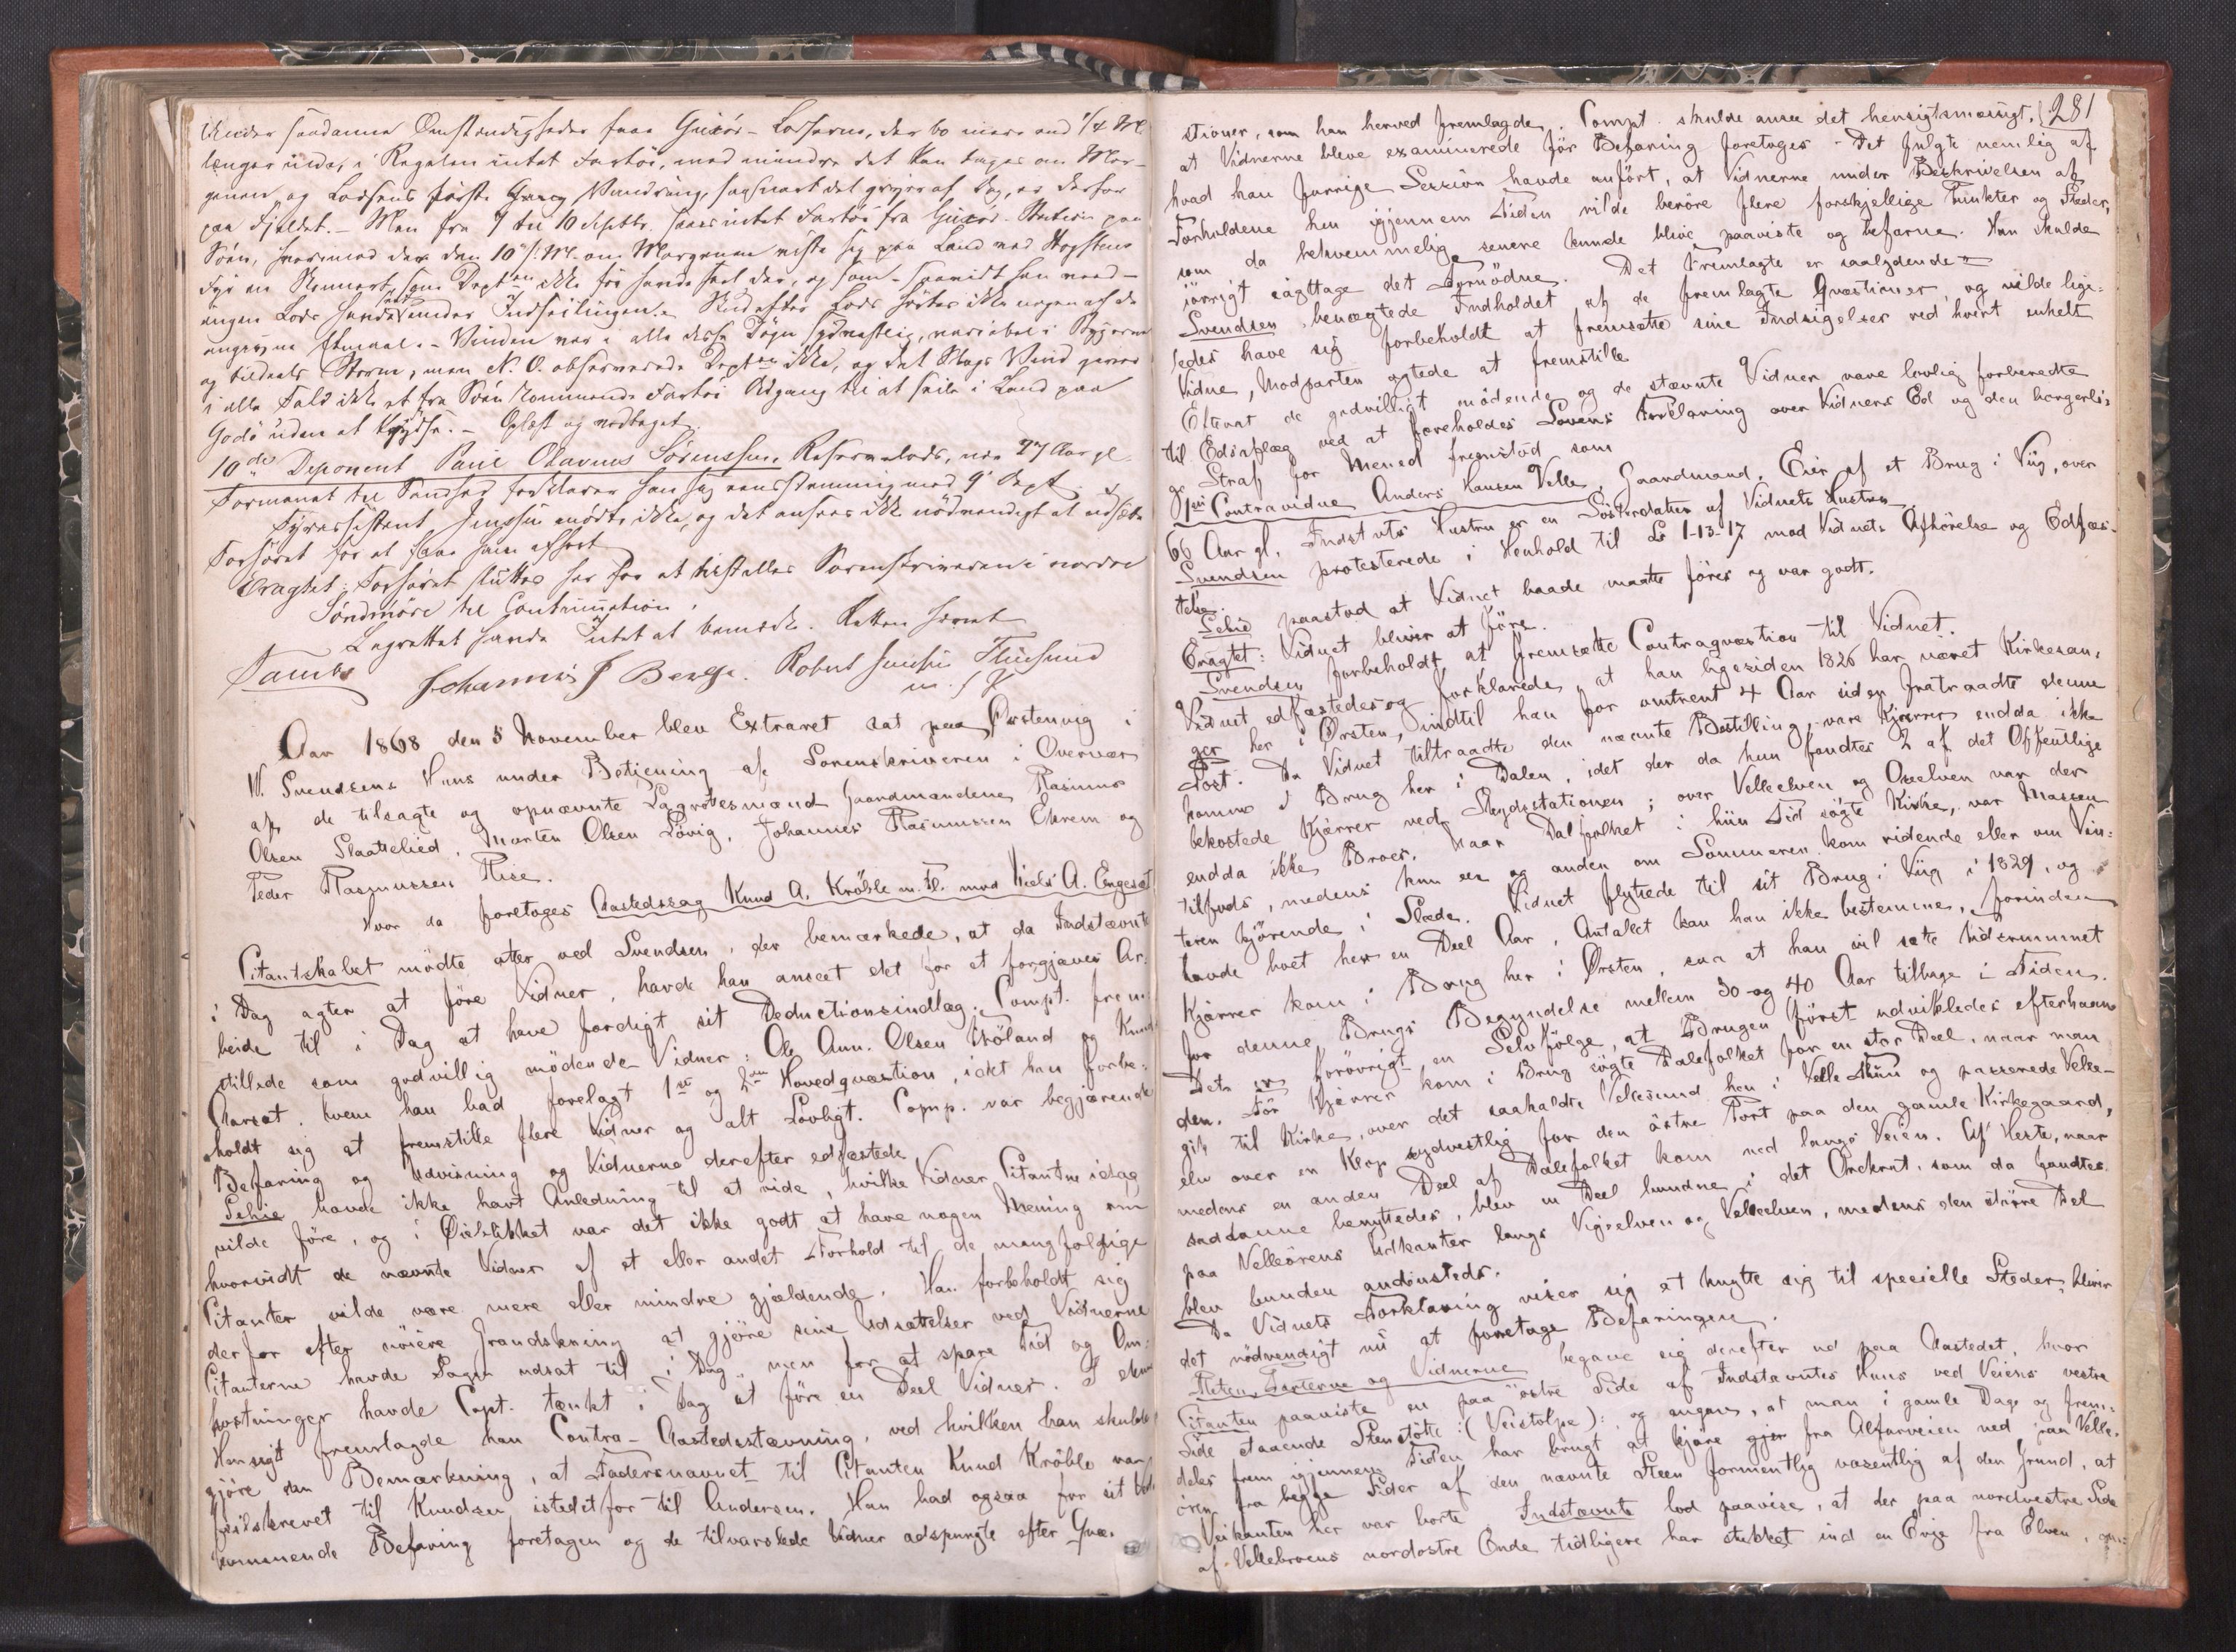 under saadanne Omstændigheder fraa Giskø-Lodserne, der bo mere end 1/4 Ml.
længer inde, i Regelen intet Fartøi, med mindre det kan tages om Mor-
genen og Lodsens første Gang Vandring, saasnart det gryer af Dag, er derfor
paa Fjeldet. – Men fra 7 til 10 Septbr. saaes intet Fartøi fra Giskø-
Søen, hvorimod der den 10 om Morgenen viste sig paa Land ved
ingen Lods havde under Indseilingen.
og tildeels Storm, men N.O. observerede Depten ikke, og det Slags Vind
i alle Fald ikke et fra Søen kommende Fartøi Adgang til at seile i Land paa
Godø uden at krydse. – Oplæst og vedtaget.
10de Deponent Paul Olavius Sørenssen, Reservelods, 27 Aar gl.
Formanet til Sandhed forklarer han sig eensstemmig med 9de Dept.
Fyrassistent Jenssen mødte ikke, og det ansees ikke nødvendigt at udsætte
Forhøret for at faae ham afhørt
Eragtet: Forhøret sluttes her for at tilstilles Sorenskriveren i nordre
Søndmøre til Continuation.
Lagrettet havde Intet at bemærke. Retten hævet
Landt Johannes J Robert Jensen Flusund
m. f. P.
Aar 1868 den 5 November blev Extraret sat paa Ørstenvig i
W. Svendsens Huus under Betjening af Sorenskriveren i Overvær
af de tilsagte og opnævnte Lagrettesmænd Gaardmændene Rasmus
Olsen Slaattelied, Morten Olsen Løvig, Johannes Rasmussen Ekrem og
Peder Rasmussen Rise.
Hvor da foretoges Aastedssag Knud A. Krøble m. Fl. mod Niels A. Engeset
Citantskabet mødte atter ved Svendsen, der bemærkede, at da Indstævnte
i Dag agter at føre Vidner, havde han anseet det for et forgjæves Ar-
beide til i Dag at have færdigt sit Deductionsindlæg. Compt. frem-
stillede som godvillig mødende Vidner: Ole Ann. Olsen Høland og Knud
Aarset, hvem han bad forelagt 1ste og 2den Hovedqvæstion, idet han forbe-
holdt sig at fremstille flere Vidner og alt Lovligt. Comp. var begjærende
Befaring og Udvisning og Vidnerne derefter edfæstede
Sehie havde ikke havt Anledning til at vide, hvilke Vidner Citantne idag
vilde føre, og i Øieblikket var det ikke godt at have nogen Mening om
hvorvidt de nævnte Vidner af et eller andet Forhold til de mangfoldige
Citanter vilde være mere eller mindre gjældende. Han forbeholdt sig
derfor efter nøiere Grandskning at gjøre sine Udsættelser ved Vidnerne
Citanterne havde Sagen udsat til i Dag men for at spare Tid og Om-
kostninger havde Copt. tænkt i Dag at føre en Deel Vidner. I
Hensigt fremlagde han Contra-Aastedsstævning, ved hvilken han skulde
gjøre den Bemærkning, at Fadersnavnet til Citanten Knud Krøble var
feilskrevet til Knudsen istedetfor til Andersen. Han bad ogsaa for sit
kommende Befaring foretagen og de tilvarslede Vidner adspurgte efter Qvæ-
281
stioner, som han herved fremlagde. Compt. skulde ansee det hensigtsmæssigt,
at Vidnerne bleve examinerede før Befaring foretages - Det fulgte nemlig af
hvad han forrige Session havde anført, at Vidnerne under Beskrivelsen af
Forholdene hen igjennem Tiden vilde berøre flere forskjellige Punkter og Steder,
som da bekvemmelig senere kunde blive paaviste og befarne. Han skulde
iøvrigt iagttage det Fornødne. Det Fremlagte er saalydende
Svendsen benægtede Indholdet af de fremlagte Qvæstioner og vilde lige-
ledes have sig forbeholdt at fremsætte sine Indsigelser ved hvert enkelt
Vidne, Modparten agtede at fremstille
Efterat de godvilligt mødende og de stævnte Vidner vare lovlig forberedte
til Edsaflæg ved at foreholdes Lovens Forklaring over Vidners Ed og den borgerlige
Straf for Meened fremstod som
1ste Contravidne Anders Hansen Velle, Gaardmand, Eier af et Brug i Viig, over
66 Aar gl. Indstvts Hustru er en Søsterdatter af Vidnets Hustru
Svendsen protesterede i Henhold til L 1-13-17 mod Vidnets Afhørelse og Edfæs-
telse.
Sehie paastod at Vidnet baade maatte føres og var godt.
Eragtet: Vidnet bliver at føre.
Svendsen forbeholdt at fremsætte Contraqvæstion til Vidnet.
Vidnet edfæstedes og forklarede, at han ligesiden 1826 har været Kirkesan-
ger her i Ørsten, indtil han for omtrent 4 Aar siden fratraadte denne
Post. Da Vidnet tiltraadte den nævnte Bestilling, vare Kjærrer endda ikke
komne i Brug her i Dalen, idet der da kun fandtes 2 af det Offentlige
bekostede Kjærrer ved Skydsstationen; over Velleelven og Oselven var der
endda ikke Broer. Naar Dalfolket i hiin Tid søgte Kirke, var Massen
tilfods, medens kun een og anden om Sommeren kom ridende eller om Vin-
teren kjørende i Slæde. Vidnet flyttede til sit Brug i Viig i 1829, og
havde boet her en Deel Aar, Antallet kan han ikke bestemme, forinden
Kjærrer kom i Brug her i Ørsten, saa at han vil sætte Tidsrummet
for denne Brugs Begyndelse mellem 30 og 40 Aar tilbage i Tiden.
Det er forøvrigt en Selvfølge, at Brugen først udvikledes efterhaan-
den. Før Kjærrer kom i Brug søgte Dalefolket for en stor Deel, naar man
gik til Kirke, over det saakaldte Vellesund hen i Velle Thun og passerede Velle-
elv over en Klop sydvestlig for den østre Port paa den gamle Kirkegaard,
medens en anden Deel af Dalefolket kom ned langs Veien. Af Heste, naar
saadanne benyttedes, blev en Deel bundne i det Orekrat, som da fandtes
paa Velleørens Udkanter langs Vigselven og Velleelven, medens den større Del
blev bunden andensteds.
Da Vidnets Forklaring viser sig at knytte sig til specielle Steder, bliver
det nødvendigt nu at foretage Befaringen.
Retten, Parterne og Vidnerne begave sig derefter ud paa Aastedet, hvor
Citanten paaviste en paa østre Side af Indstævntes Huus ved Veiens vestre
Side staaende Steenstøtte (Veistolpe): og angav, at man i gamle Dage og frem-
deles frem igjennem Tiden har brugt at kjøre fra Alfarveien ned paa Velle-
øren fra begge Sider af den nævnte Steen formentlig væsentlig af den Grund, at
Veikanten her var borte. Indstævnte lod paavise, at der paa nordvestre Side
af Vellebroens nordostre Ende tidligere har stukket ind en Evje fra Elven,